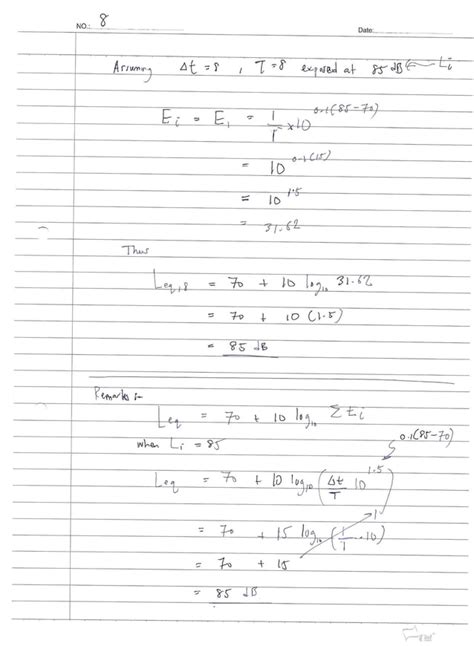 NO.: 8
Date:
Assuming Δt = 8 , T = 8 exposed at 85 dB ← Li
Ei = E1 = 1/T × 10^0.1(85-70)
= 10^0.1(15)
= 10^1.5
= 31.62
Thus
Leq,8 = 70 + 10 log10 31.62
= 70 + 10 (1.5)
= 85 dB
Remarks :-
Leq = 70 + 10 log10 Σ Ei
when Li = 85
0.1(85-70)
Leq = 70 + 10 log10 (Δt/T 10^1.5)
= 70 + 15 log10 (1/1 . 10) 1
= 70 + 15
= 85 dB